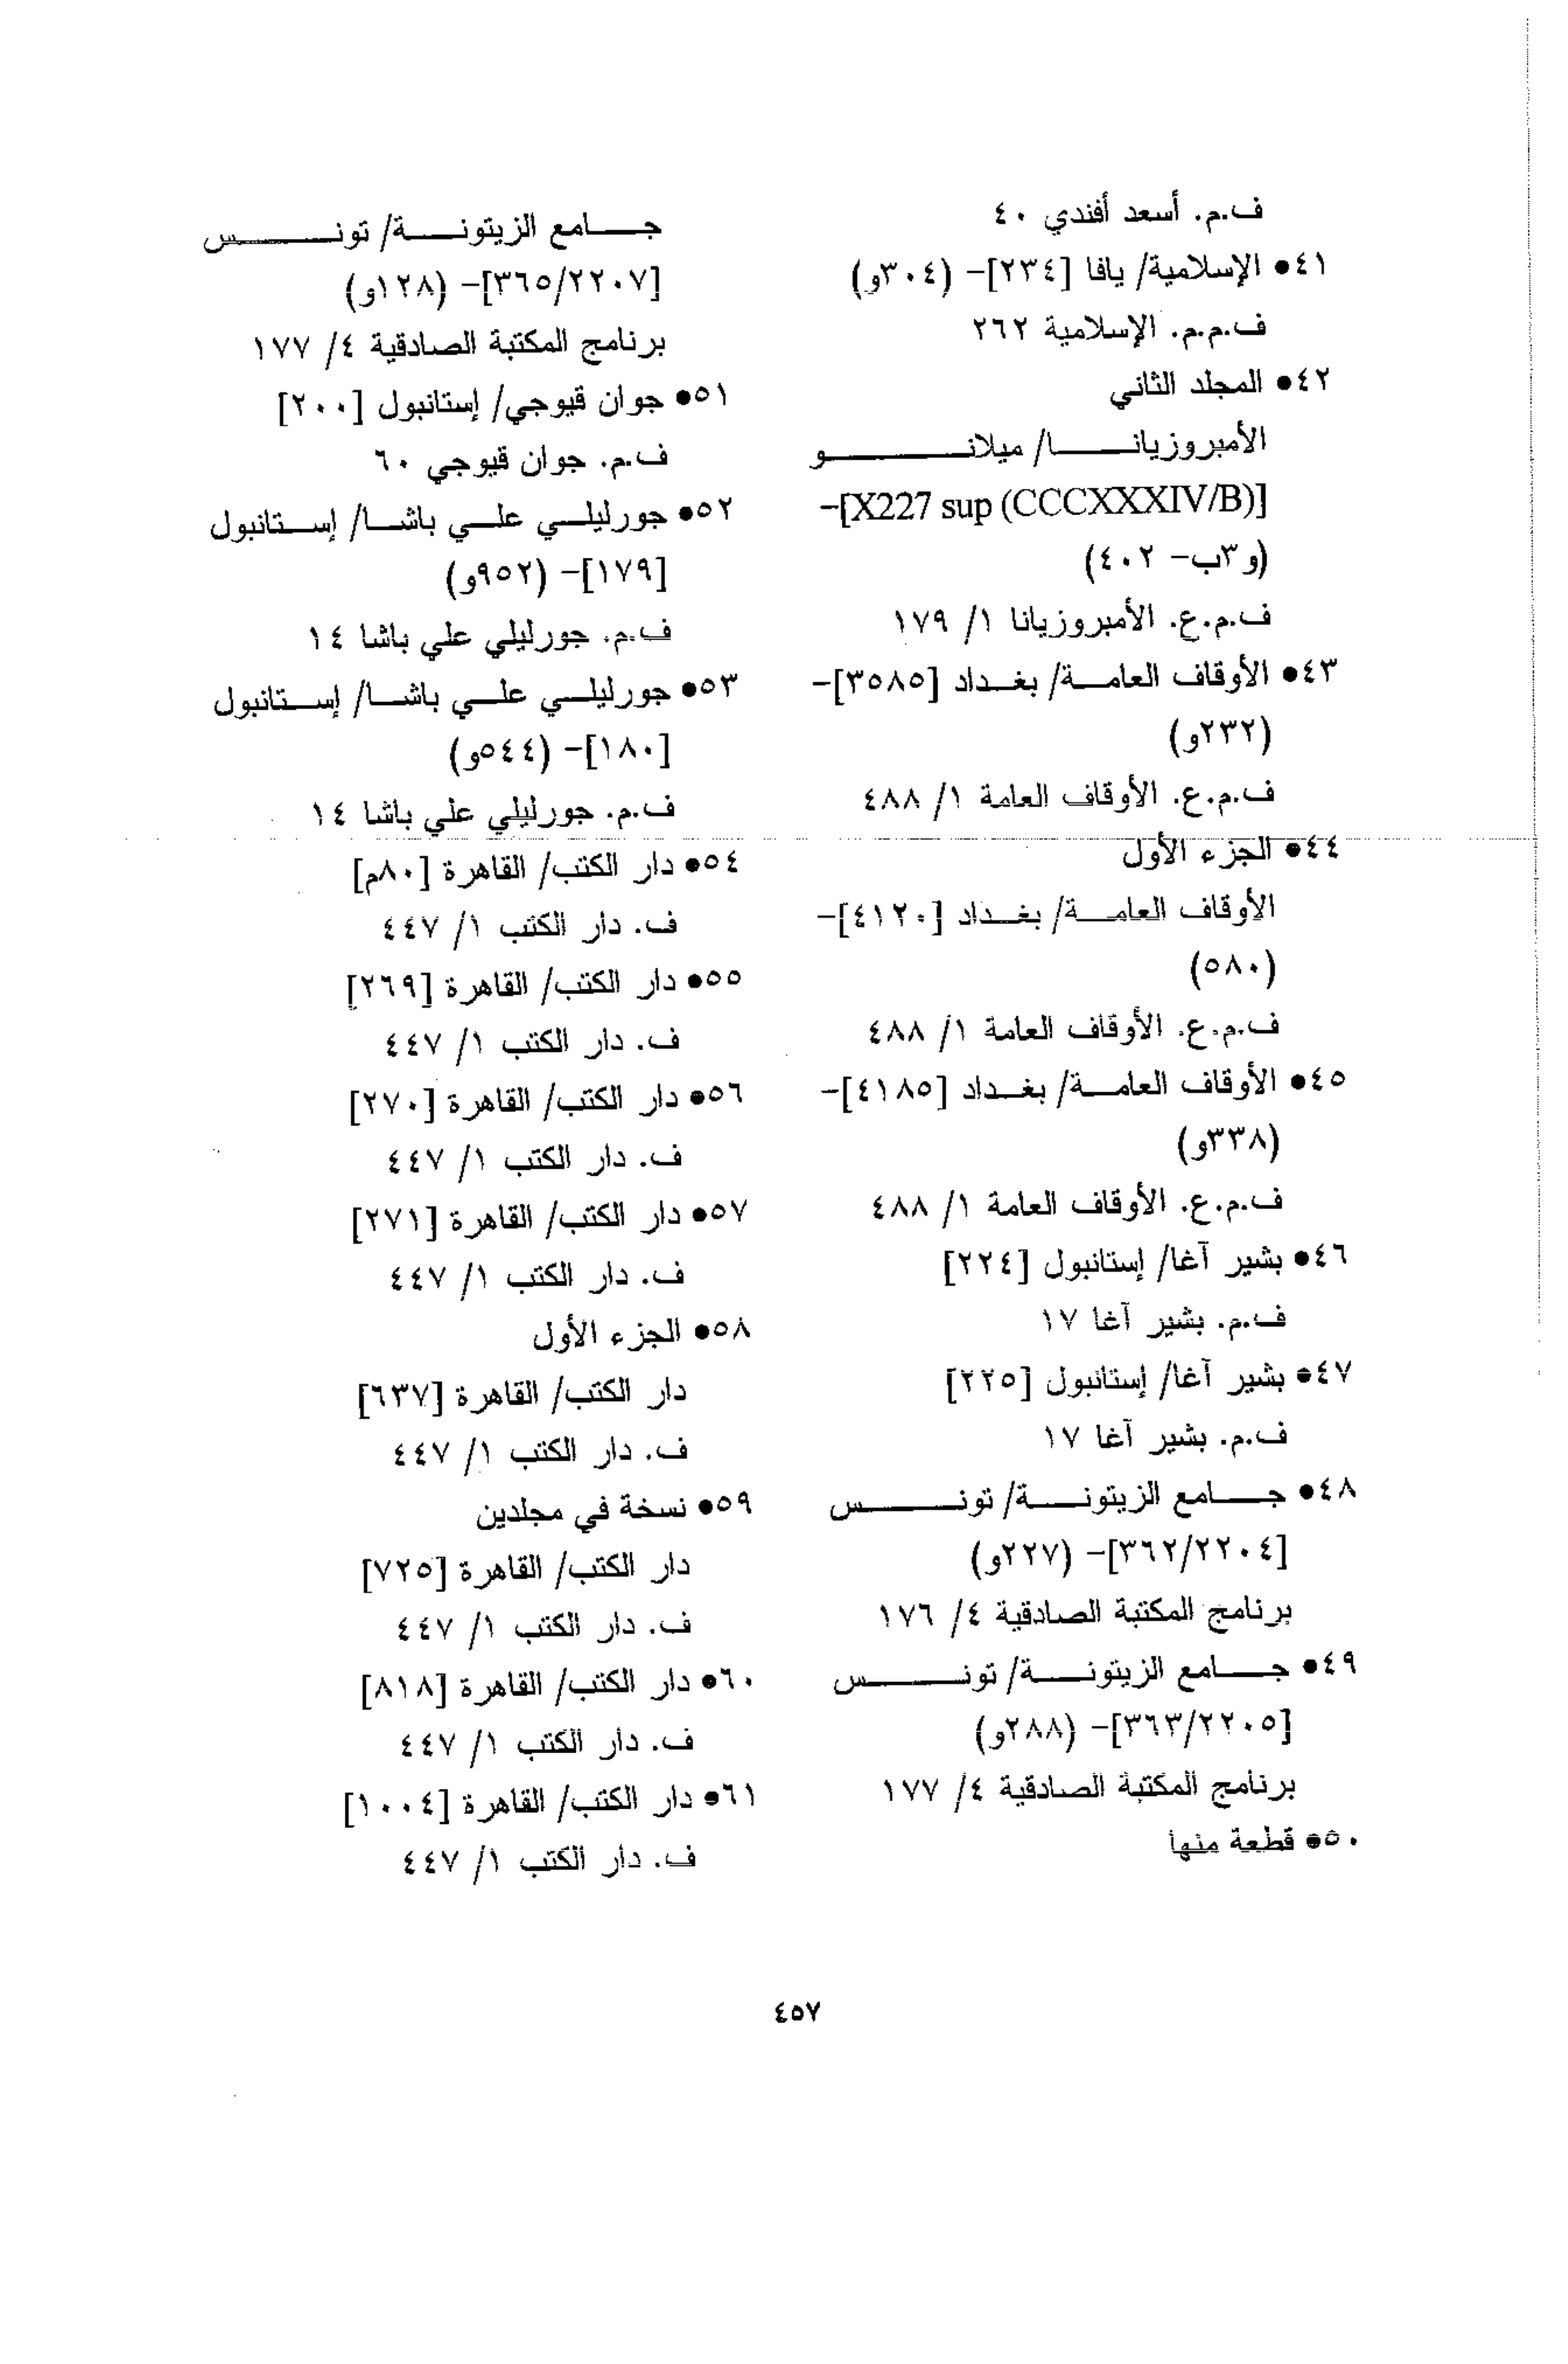 ف.م. أسعد أفندي ٤٠
٤١● الإسلامية/ يافا [٢٣٤]- (٣٠٤و)
ف.م.م. الإسلامية ٢٦٢
٤٢● المجلد الثاني
الأمبروزيانـــــا/ ميلانـــــــو
[X227 sup (CCCXXXIV/B)]-
(و٣ب- ٤٠٢)
ف.م.ع. الأمبروزيانا ١/ ١٧٩
٤٣● الأوقاف العامــة/ بغــداد [٣٥٨٥]-
(٢٣٢و)
ف.م.ع. الأوقاف العامة ١/ ٤٨٨
٤٤● الجزء الأول
الأوقاف العامــة/ بغــداد [٤١٢٠]-
(٥٨٠)
ف.م.ع. الأوقاف العامة ١/ ٤٨٨
٤٥● الأوقاف العامــة/ بغــداد [٤١٨٥]-
(٣٣٨و)
ف.م.ع. الأوقاف العامة ١/ ٤٨٨
٤٦● بشير آغا/ إستانبول [٢٢٤]
ف.م. بشير آغا ١٧
٤٧● بشير آغا/ إستانبول [٢٢٥]
ف.م. بشير آغا ١٧
٤٨● جــــامع الزيتونــــة/ تونـــــــس
[٣٦٢/٢٢٠٤]- (٢٢٧و)
برنامج المكتبة الصادقية ٤/ ١٧٦
٤٩● جــــامع الزيتونــــة/ تونـــــــس
[٣٦٣/٢٢٠٥]- (٢٨٨و)
برنامج المكتبة الصادقية ٤/ ١٧٧
٥٠● قطعة منها
جــــامع الزيتونــــة/ تونـــــــس
[٣٦٥/٢٢٠٧]- (١٢٨و)
برنامج المكتبة الصادقية ٤/ ١٧٧
٥١● جوان قيوجي/ إستانبول [٢٠٠]
ف.م. جوان قيوجي ٦٠
٥٢● جورليلــي علــي باشــا/ إســتانبول
[١٧٩]- (٩٥٢و)
ف.م. جورليلي علي باشا ١٤
٥٣● جورليلــي علــي باشــا/ إســتانبول
[١٨٠]- (٥٤٤و)
ف.م. جورليلي علي باشا ١٤
٥٤● دار الكتب/ القاهرة [٨٠م]
ف. دار الكتب ١/ ٤٤٧
٥٥● دار الكتب/ القاهرة [٢٦٩]
ف. دار الكتب ١/ ٤٤٧
٥٦● دار الكتب/ القاهرة [٢٧٠]
ف. دار الكتب ١/ ٤٤٧
٥٧● دار الكتب/ القاهرة [٢٧١]
ف. دار الكتب ١/ ٤٤٧
٥٨● الجزء الأول
دار الكتب/ القاهرة [٦٣٧]
ف. دار الكتب ١/ ٤٤٧
٥٩● نسخة في مجلدين
دار الكتب/ القاهرة [٧٢٥]
ف. دار الكتب ١/ ٤٤٧
٦٠● دار الكتب/ القاهرة [٨١٨]
ف. دار الكتب ١/ ٤٤٧
٦١● دار الكتب/ القاهرة [١٠٠٤]
ف. دار الكتب ١/ ٤٤٧
٤٥٧